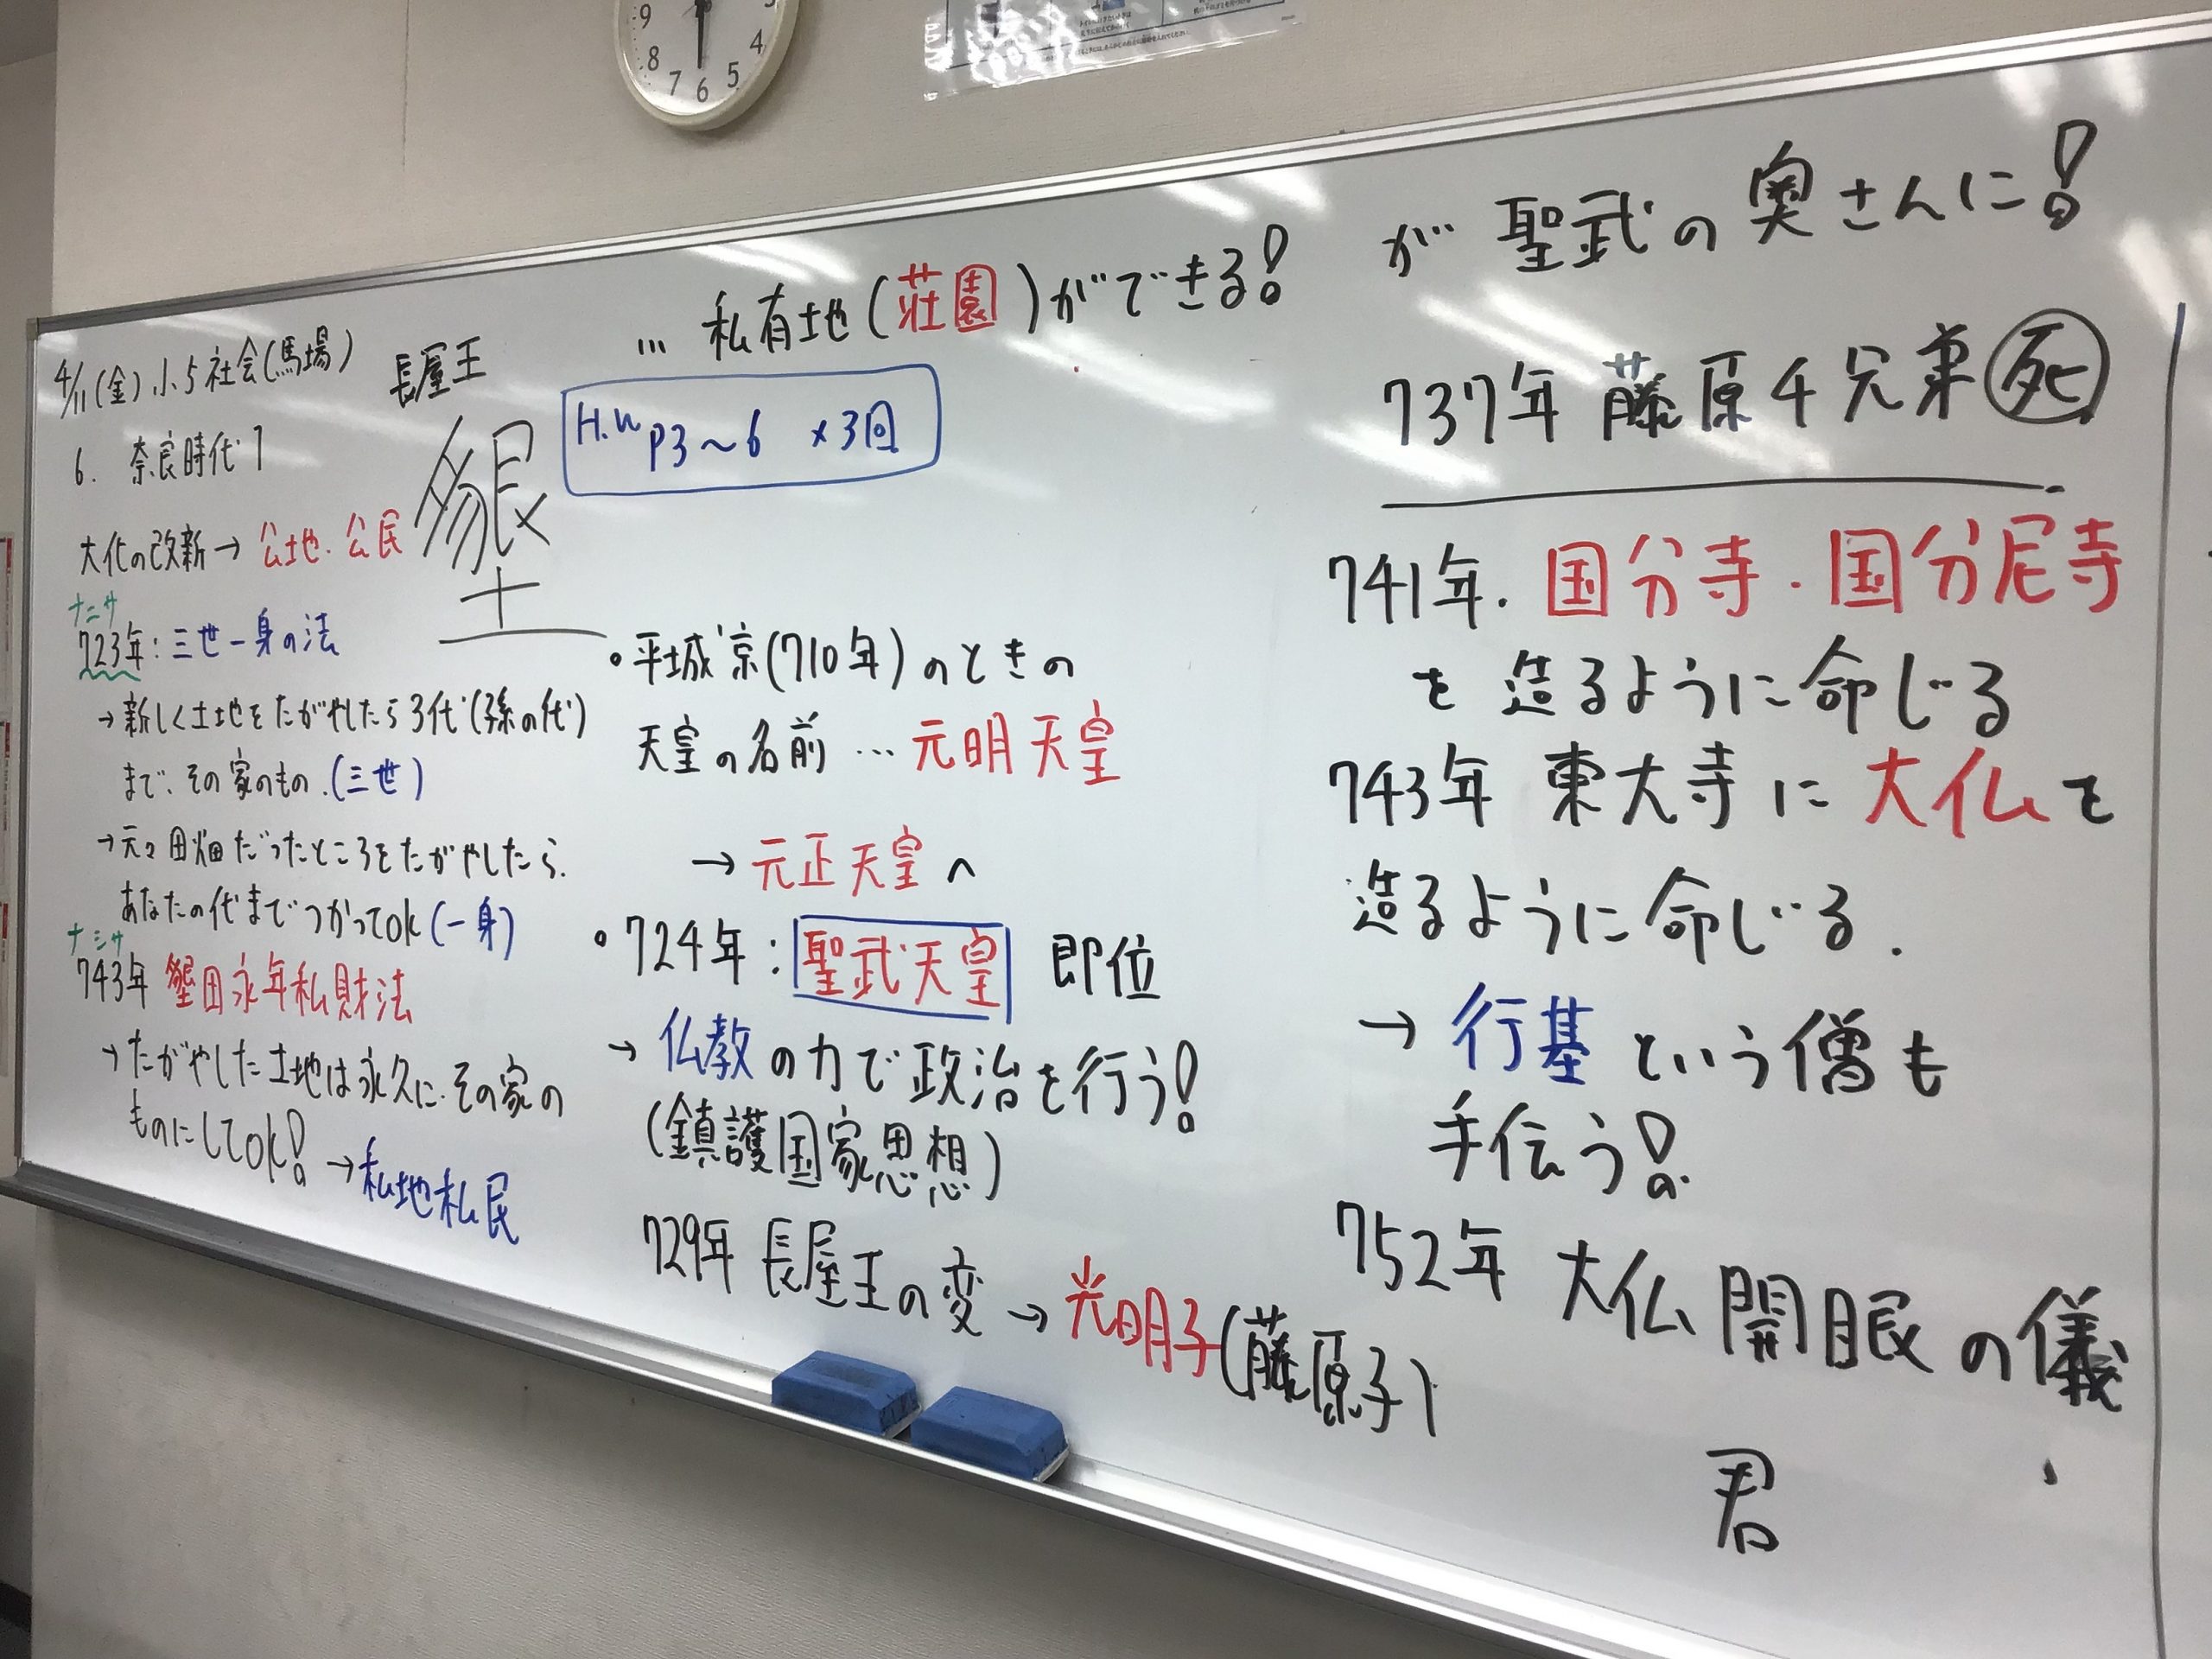 4/11(金) 小5社会(馬場)
6. 奈良時代1
大化の改新→公地・公民
ナニサ
723年:三世一身の法
→新しく土地をたがやしたら3代(孫の代)
まで、その家のもの.(三世)
→元々田畑だったところをたがやしたら.
あなたの代までつかってOK(一身)
ナシサ
743年 墾田永年私財法
→たがやした土地は永久に.その家の
ものにしてOK!
→私地私民
長屋王
墾
… 私有地(荘園)ができる!
H.W P3~6 ×3回
。平城京(710年)のときの
天皇の名前…元明天皇
→元正天皇へ
。724年:聖武天皇 即位
→仏教の力で政治を行う!
(鎮護国家思想)
729年 長屋王の変→光明子(藤原子)
が聖武の奥さんに!
737年 藤原4兄弟死
741年. 国分寺・国分尼寺
を造るように命じる
743年 東大寺に大仏を
造るように命じる.
→行基という僧も
手伝う!
752年 大仏開眼の儀
君
9
8
7
6
5
4